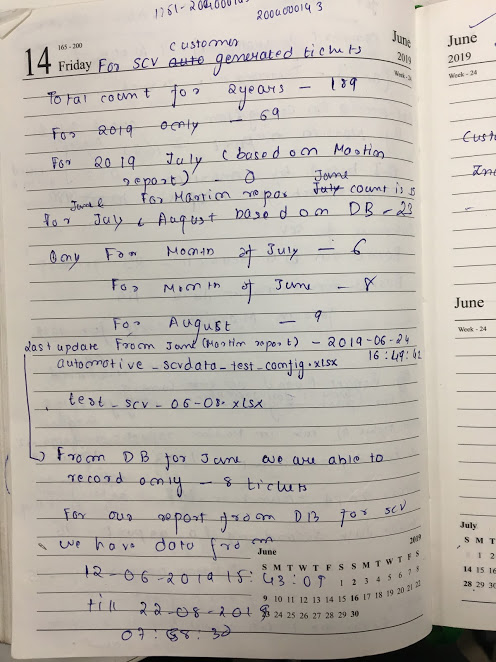 2004000143
14
165 - 200
Friday
June
2019
Week - 24
customer
For SCV auto generated tickets
Total count for 2years - 189
For 2019 only - 69
For 2019 July (based on Martin
report) - 0
June
For Martin repor July count is
June &
For July & August based on DB - 23
Only For Month of July - 6
For Month of June - 8
For August - 9
Last update From June (Martin report) - 2019-06-24
16:49:42
automotive_scvdata_test_config.xlsx
test_scv_06-08.xlsx
From DB for June we are able to
record only - 8 tickets
For our report from DB for scv
we have data from
12-06-2019 15:43:09
till 22-08-2019
07:58:32
June
2019
S M T W T F S S M T W T F S
1 2 3 4 5 6 7 8
9 10 11 12 13 14 15 16 17 18 19 20 21 22
23 24 25 26 27 28 29 30
June
2019
Week - 24
June
Week - 24
July
S M T
1 2
14 15 16
28 29 30